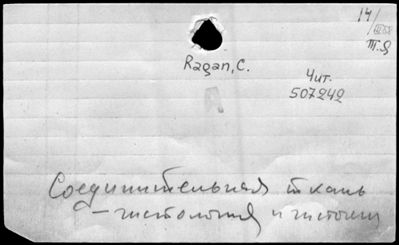 14/
III 58
Т.Я
Ragan, C.
Чит.
507242
Соединительная ткань
– гистология и гистохим